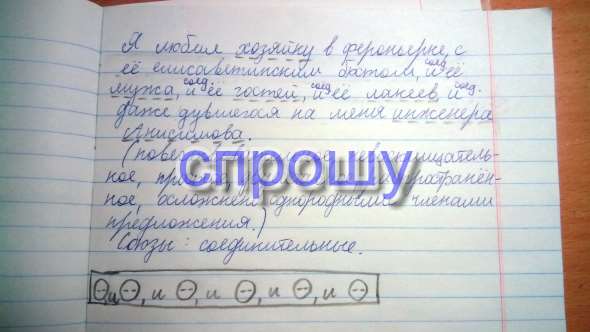 Я любил хозяйку в фероньерке, с
её елисаветинским бюстом, и её
соед.
мужа, и её гостей, и её лакеев, и
соед. соед. соед.
даже дувшегося на меня инженера
Анисимова.
(повес спрошу
ное, пр
ное, осложнен однородными членами
предложения.)
Союзы: соединительные.
и , и , и , и , и